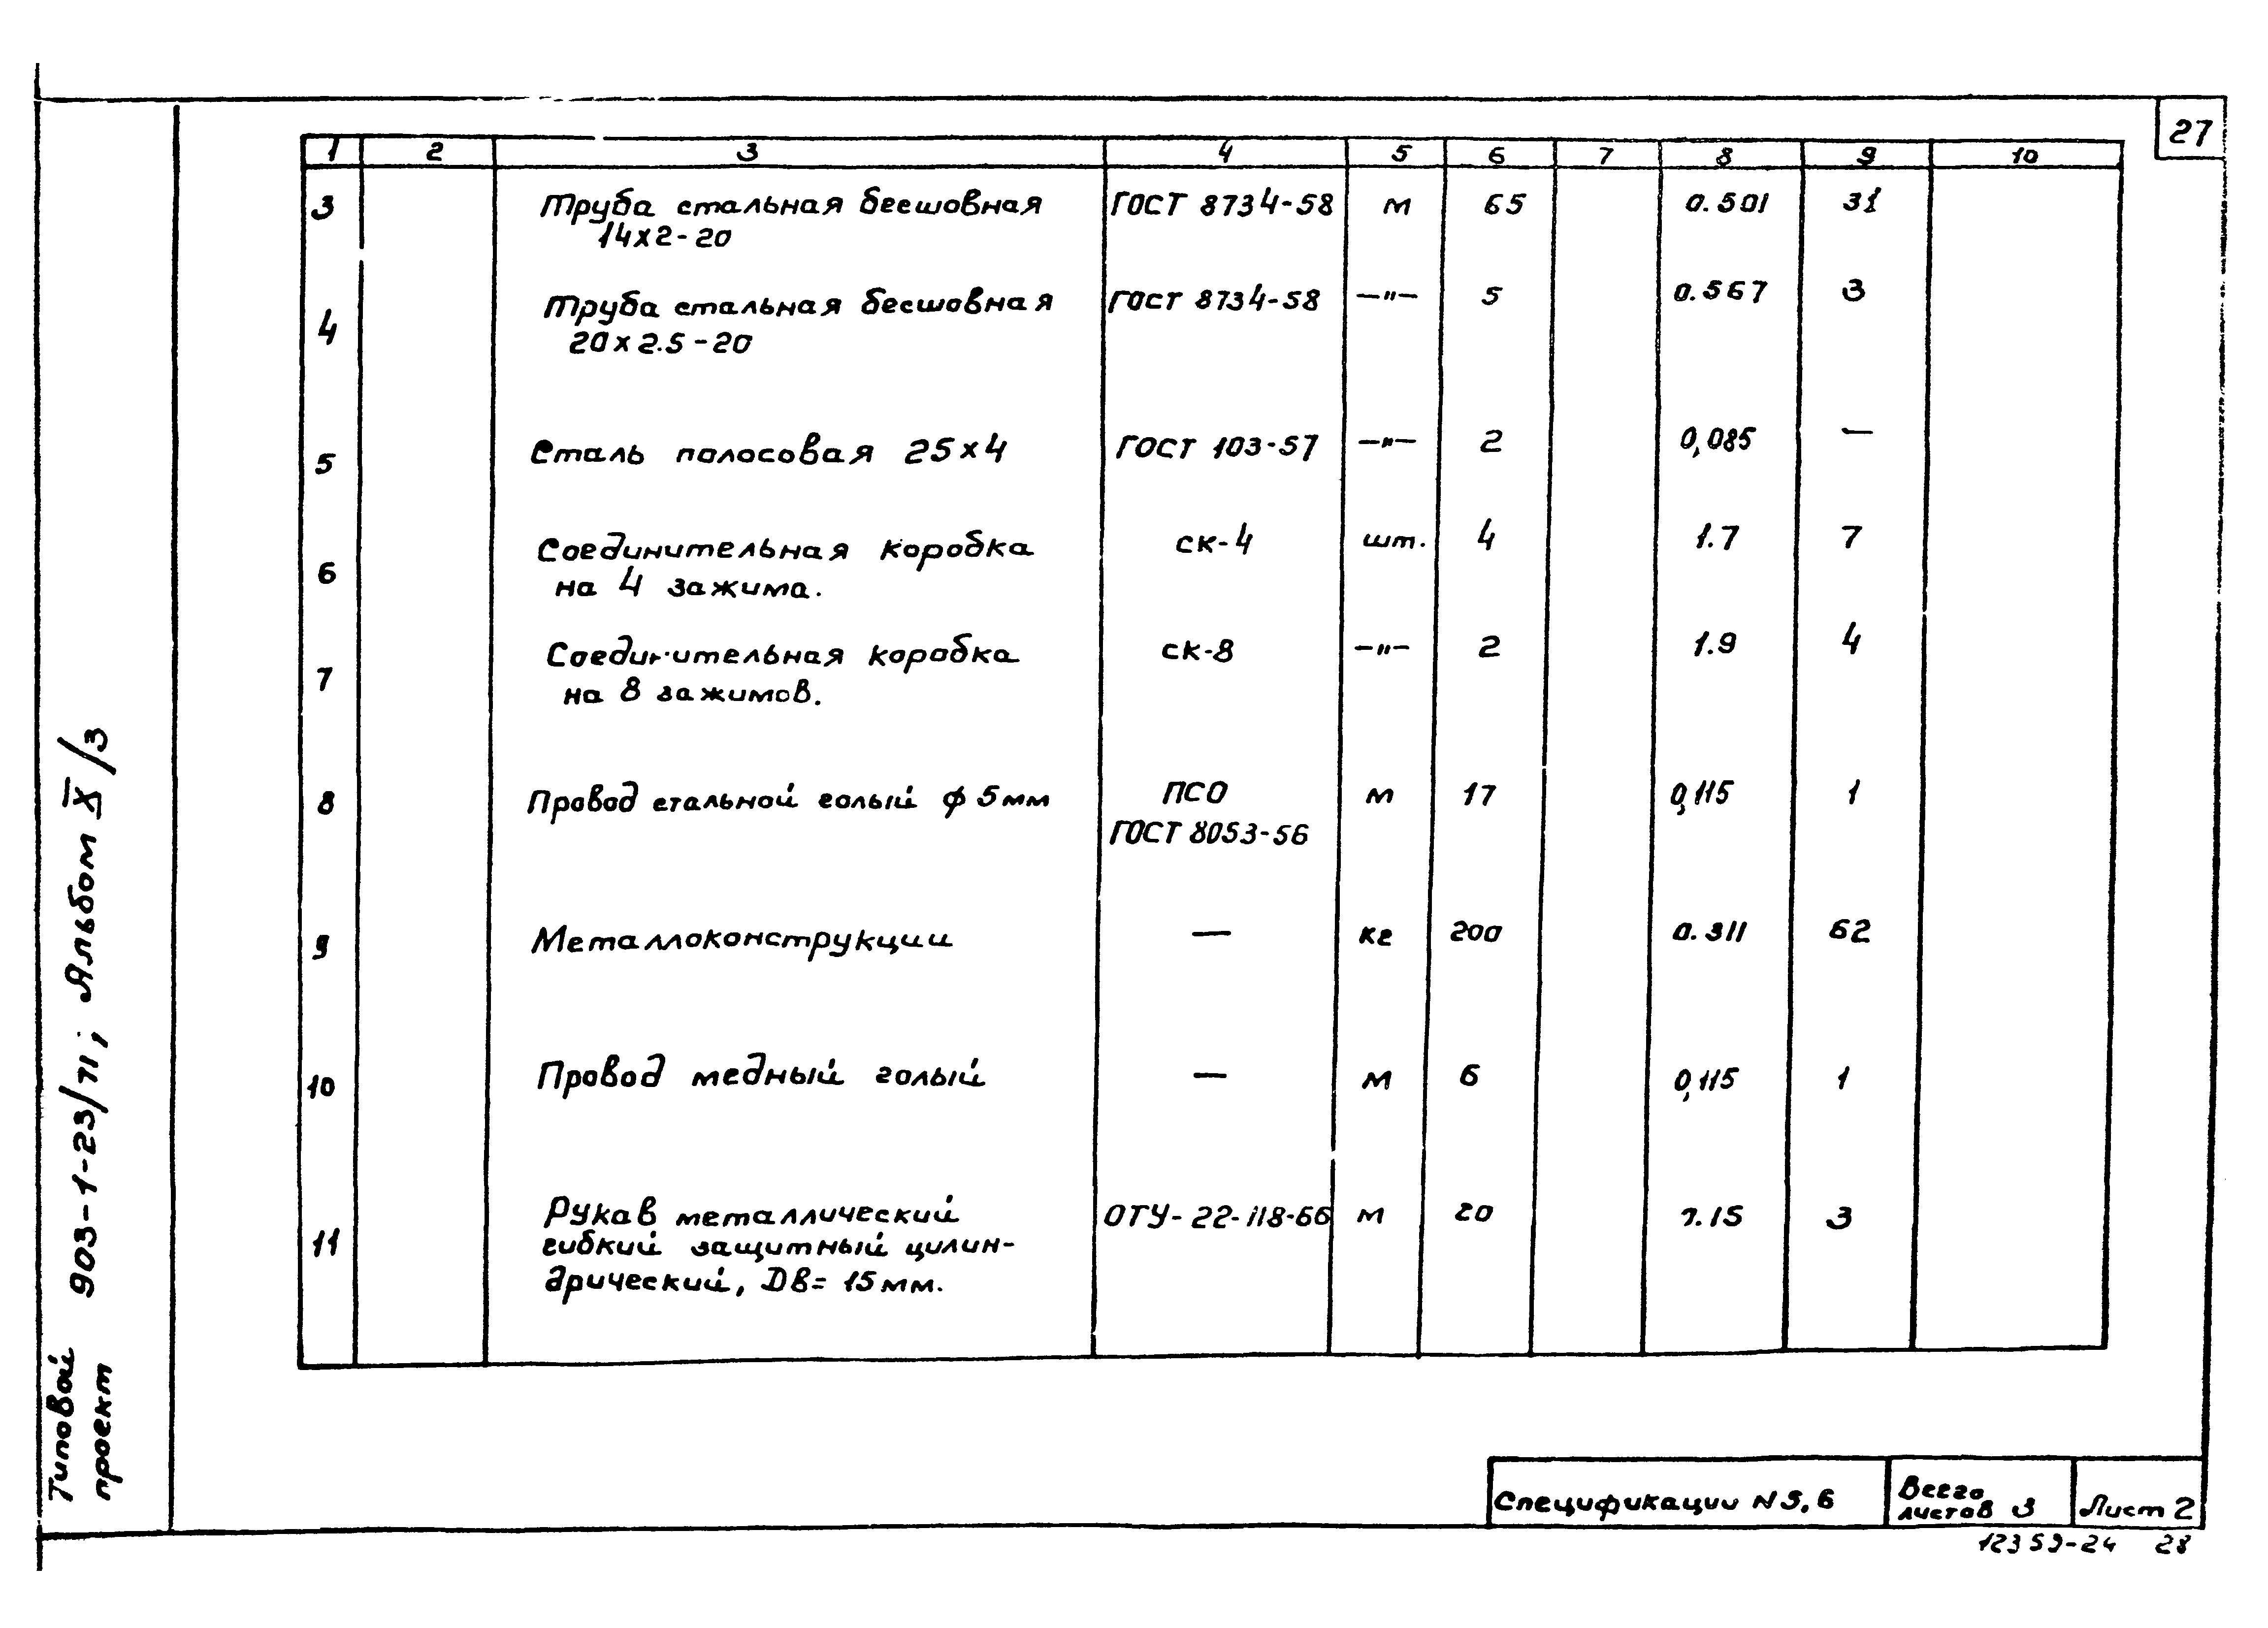 27
1 2 3 4 5 6 7 8 9 10
3 Труба стальная бесшовная ГОСТ 8734-58 м 65 0.501 31
14х2-20
4 Труба стальная бесшовная ГОСТ 8734-58 —"— 5 0.567 3
20х2.5-20
5 Сталь полосовая 25х4 ГОСТ 103-57 —"— 2 0,085 —
6 Соединительная коробка СК-4 шт. 4 1.7 7
на 4 зажима.
7 Соединительная коробка СК-8 —"— 2 1.9 4
на 8 зажимов.
8 Провод стальной голый ф 5мм ПСО м 17 0,115 1
ГОСТ 8053-56
9 Металлоконструкции — кг 200 0.311 62
10 Провод медный голый — м 6 0,115 1
11 Рукав металлический ОТУ-22-118-66 м 20 .15 3
гибкий защитный цилин-
дрический, Dв= 15мм.
Типовой
проект
903-1-23/71; Альбом X/3
Спецификации N 5,6
Всего
листов 3
Лист 2
12359-24 28